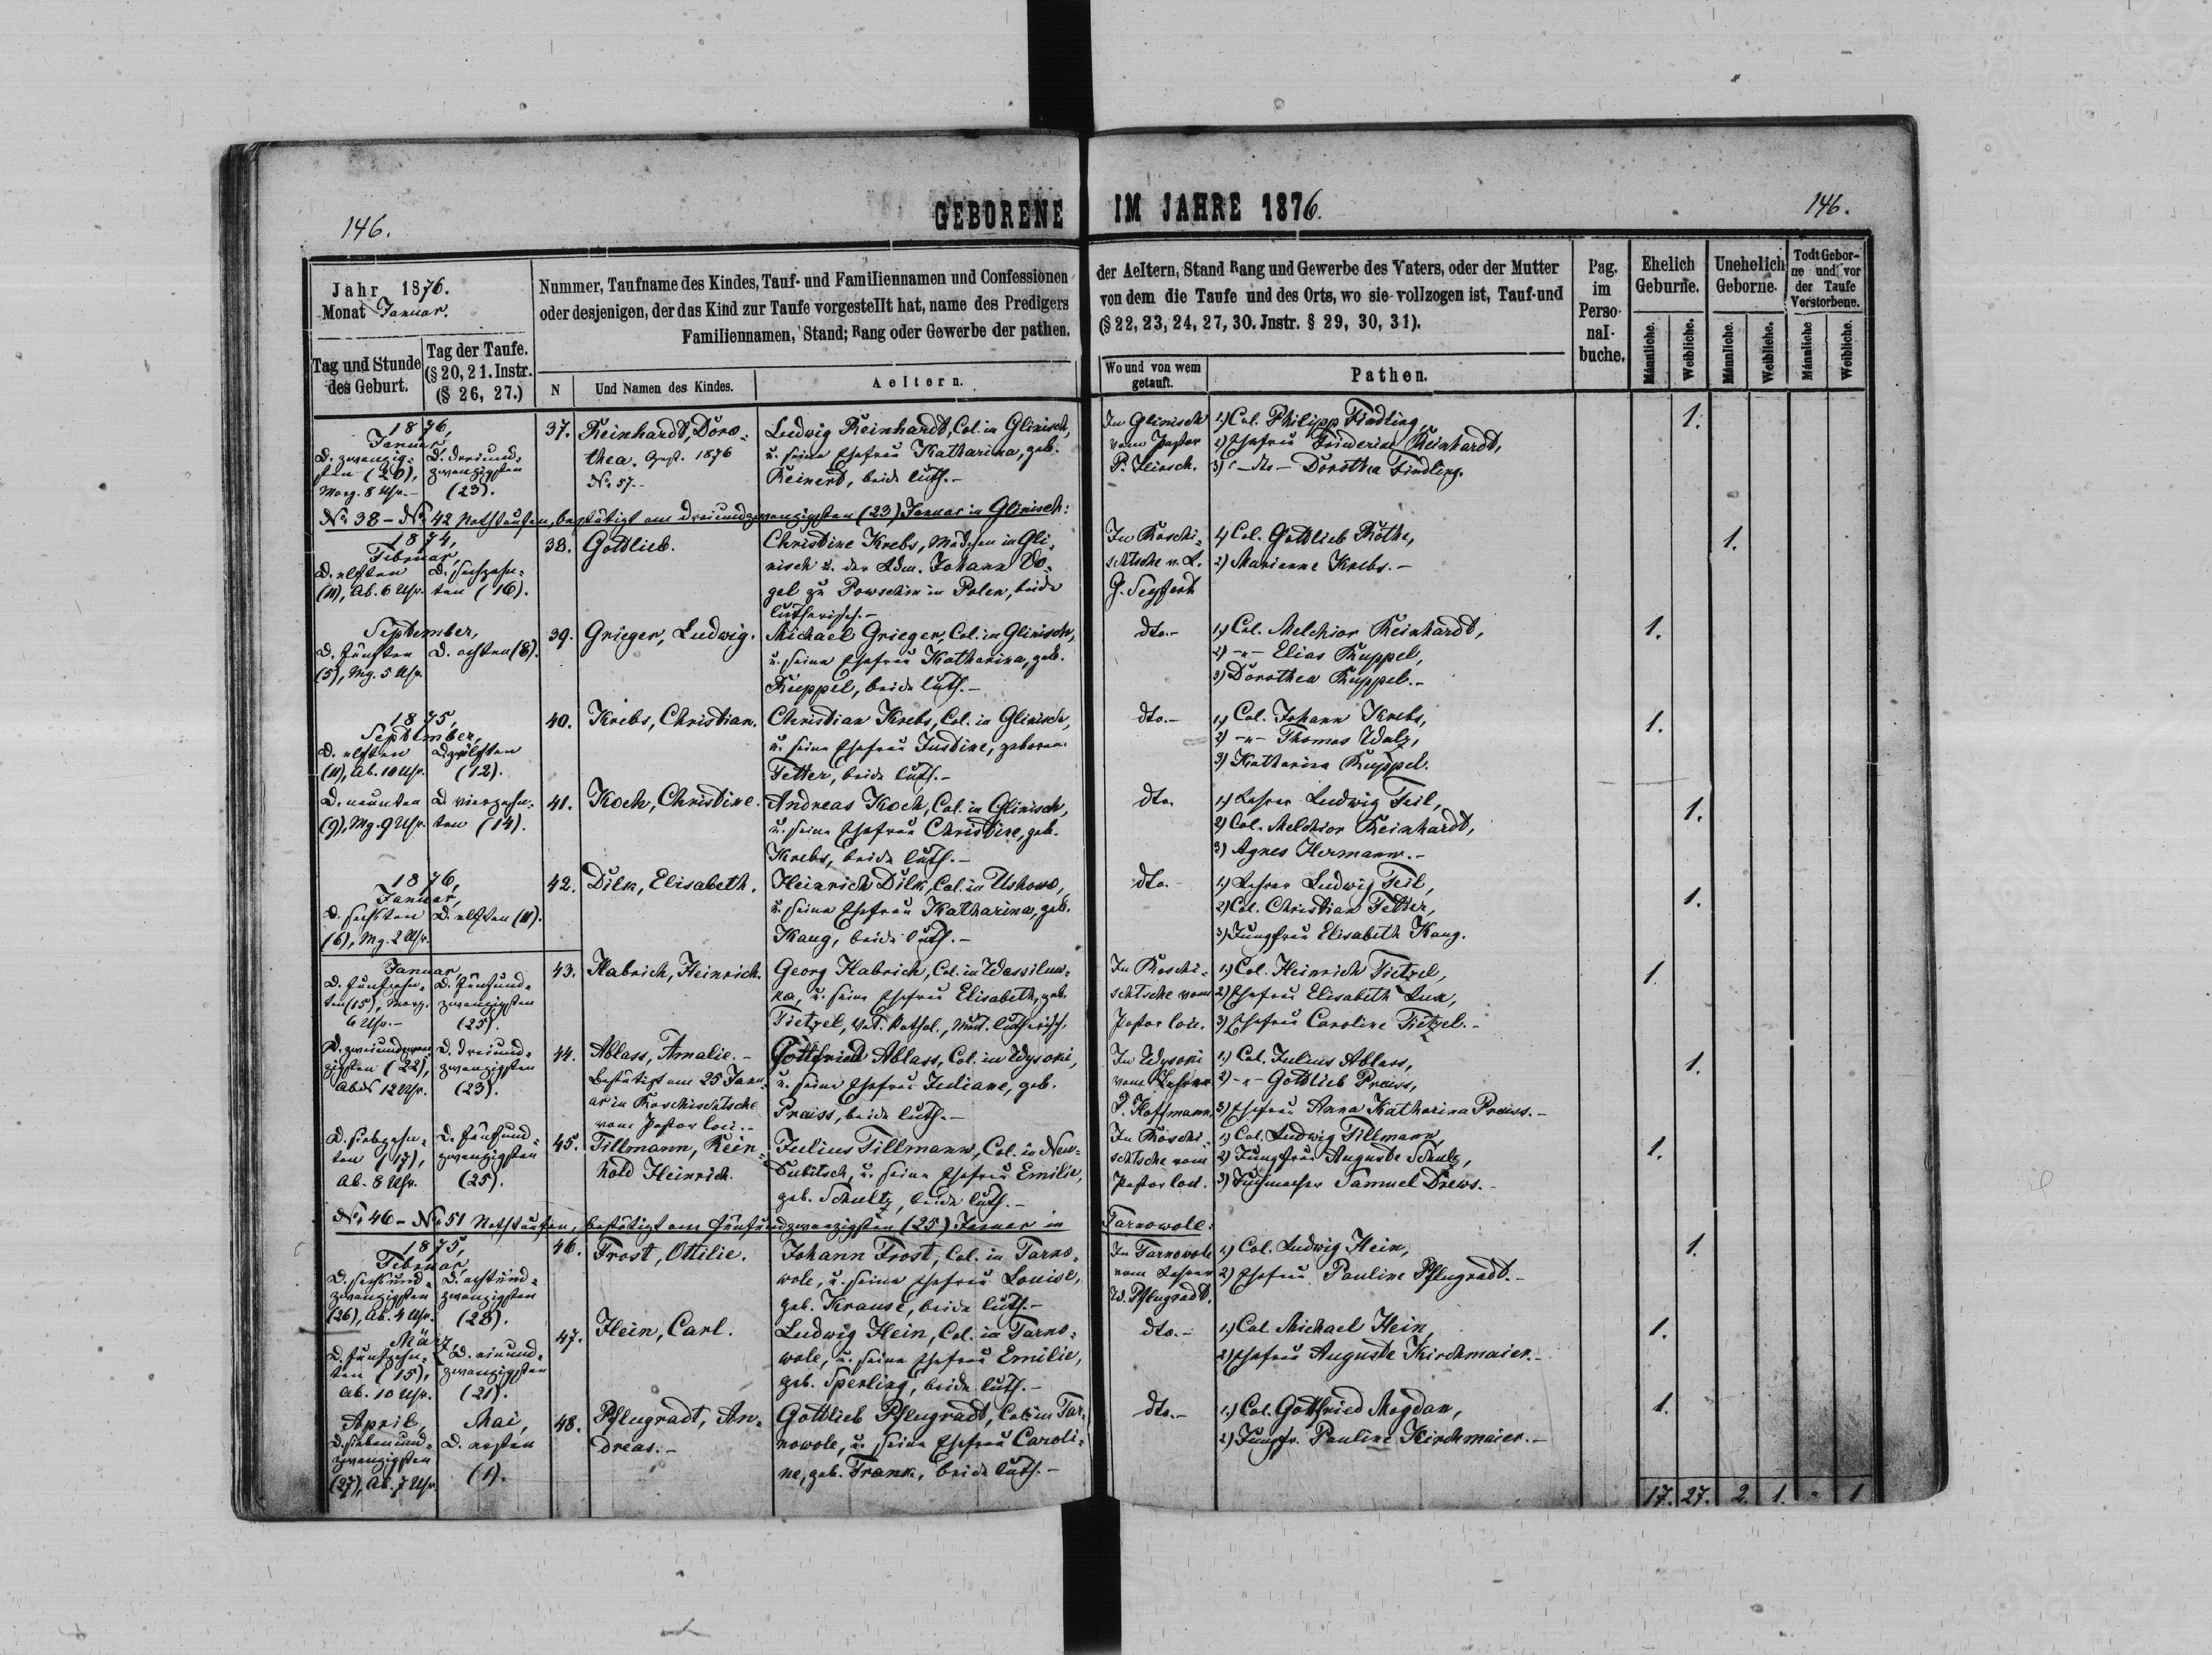 146.
GEBORENE IM JAHRE 1876.
146.
Jahr 1876.
Monat Januar.
Tag und Stunde
des Geburt.
Tag der Taufe.
(§ 20, 21. Instr.
(§ 26, 27.)
Nummer, Taufname des Kindes, Tauf- und Familiennamen und Confessionen
oder desjenigen, der das Kind zur Taufe vorgestellt hat, name des Predigers
Familiennamen, Stand; Rang oder Gewerbe der pathen.
N
Und Namen des Kindes.
Aeltern.
der Aeltern, Stand Rang und Gewerbe des Vaters, oder der Mutter
von dem die Taufe und des Orts, wo sie vollzogen ist, Tauf-und
(§ 22, 23, 24, 27, 30. Jnstr. § 29, 30, 31).
Wo und von wem
getauft.
Pathen.
Pag.
im
Perso-
nal-
buche.
Ehelich
Geburne.
Unehelich
Geborne.
Todt Gebor-
ne und vor
der Taufe
Verstorbene.
Männliche.
Weibliche.
Männliche.
Weibliche.
Männliche
Weibliche.
1876,
Januar
D. zwanzig-
sten (20),
Morg. 8 Uhr.-
D. dreiund-
zwanzigsten
(23).
37.
Reinhardt, Doro-
thea. Gest. 1876
No 57.-
Ludwig Reinhardt, Col. in Glinisch,
u. seine Ehefrau Katharina, geb.
Reinerd, beide luth.-
In Glinisch
vom Pastor
P. Heinsch.
1) Col. Philipp Findling,
2) Ehefrau Friderine Reinhardt,
3) -dto- Dorothea Findling.
1.
No 38 - No 42 Nothtaufen, bestätigt am dreiundzwanzigsten (23) Januar in Glinisch:
1874,
Februar,
D. elften
(11), Ab. 6 Uhr.
D. sechzehn-
ten (16).
38.
Gottlieb.
Christine Krebs, Mädchen in Gli-
nisch u. der Adm. Johann Vo-
gel zu Powschin in Polen, beide
lutherisch.-
In Roschi-
schtsche v. L.
G. Seyfert
1) Col. Gottlieb Röthe,
2) Marianne Krebs.-
1.
September,
D. fünften
(5), Mg. 5 Uhr.
D. achten (8).
39.
Grieger, Ludwig.
Michael Grieger, Col. in Glinisch,
u. seine Ehefrau Katharina, geb.
Ruppel, beide luth.-
dto.-
1) Col. Melchior Reinhardt,
2) -"- Elias Ruppel,
3) Dorothea Ruppel.-
1.
1875,
September,
D. elften
(11), Ab. 10 Uhr.
D. zwölften
(12).
40.
Krebs, Christian.
Christian Krebs, Col. in Glinisch,
u. seine Ehefrau Justine, geborne
Fetter, beide luth.-
dto.-
1) Col. Johann Krebs,
2) -"- Thomas Walz,
3) Katharina Ruppel.
1.
D. neunten
(9), Mg. 9 Uhr.
D. vierzehn-
ten (14).
41.
Koch, Christine.
Andreas Koch, Col. in Glinisch,
u. seine Ehefrau Christine, geb.
Krebs, beide luth.-
dto.
1) Lehrer Ludwig Feil,
2) Col. Melchior Reinhardt,
3) Agnes Hermann.-
1.
1876,
Januar,
D. sechsten
(6), Mg. 2 Uhr.
D. elften (11).
42.
Dilk, Elisabeth.
Heinrich Dilk, Col. in Ushowo,
u. seine Ehefrau Katharina, geb.
Kaug, beide luth.-
dto.-
1) Lehrer Ludwig Feil,
2) Col. Christian Fetter,
3) Jungfrau Elisabeth Kaug.
1.
Januar,
D. fünfzehn-
ten (15), Morg.
6 Uhr.-
D. fünfund-
zwanzigsten
(25).
43.
Habrich, Heinrich.
Georg Habrich, Col. in Wassilew-
ka, u. seine Ehefrau Elisabeth, geb.
Tietzel, Vat. Kathol., Mut. lutherisch.
In Roschi-
schtsche vom
Pastor loci.
1) Col. Heinrich Tietzel,
2) Ehefrau Elisabeth Lux,
3) Ehefrau Caroline Tietzel.-
1.
D. zweiundzwan-
zigsten (22),
Abds 12 Uhr.
D. dreiund-
zwanzigsten
(23).
44.
Ablass, Amalie.-
Bestätigt am 25 Janu-
ar in Roschischtsche
vom Pastor loci.-
Gottfried Ablass, Col. in Wysoki,
u. seine Ehefrau Juliane, geb.
Preiss, beide luth.-
In Wysoki
vom Lehrer
P. Hoffmann.
1) Col. Julius Ablass,
2) -"- Gottlieb Preiss,
3) Ehefrau Anna Katharina Preiss.-
1.
D. siebzehn-
ten (17),
Ab. 8 Uhr.
D. fünfund-
zwanzigsten
(25).
45.
Tillmann, Rein-
hold Heinrich.
Julius Tillmann, Col. in Neu-
Dubitsch, u. seine Ehefrau Emilie,
geb. Schultz, beide luth.-
In Roschi-
schtsche vom
Pastor loci.
1) Col. Ludwig Tillmann,
2) Jungfrau Auguste Schulz,
3) Tuchmacher Samuel Drews.-
1.
No 46 - No 51 Nothtaufen, bestätigt am fünfundzwanzigsten (25) Januar in Tarnowole:
1875,
Februar,
D. sechsund-
zwanzigsten
(26), Ab. 4 Uhr.
D. achtund-
zwanzigsten
(28).
46.
Frost, Ottilie.
Johann Frost, Col. in Tarno-
wole, u. seine Ehefrau Louise,
geb. Krause, beide luth.-
In Tarnowole
vom Lehrer
W. Pflugradt.
1) Col. Ludwig Hein,
2) Ehefrau Pauline Pflugradt.-
1.
März,
D. fünfzehn-
ten (15),
Ab. 10 Uhr.
D. einund-
zwanzigsten
(21).
47.
Hein, Carl.
Ludwig Hein, Col. in Tarno-
wole, u. seine Ehefrau Emilie,
geb. Sperling, beide luth.-
dto.-
1) Col. Michael Hein,
2) Ehefrau Auguste Kirchmaier.-
1.
April,
D. siebenund-
zwanzigsten
(27), Ab. 7 Uhr.
Mai,
D. ersten
(1).
48.
Pflugradt, An-
dreas.-
Gottlieb Pflugradt, Col. in Tar-
nowole, u. seine Ehefrau Caroli-
ne, geb. Frank, beide luth.-
dto.-
1) Col. Gottfried Mogdan,
2) Jungfr. Pauline Kirchmaier.-
1.
17. 27. 2. 1. " 1